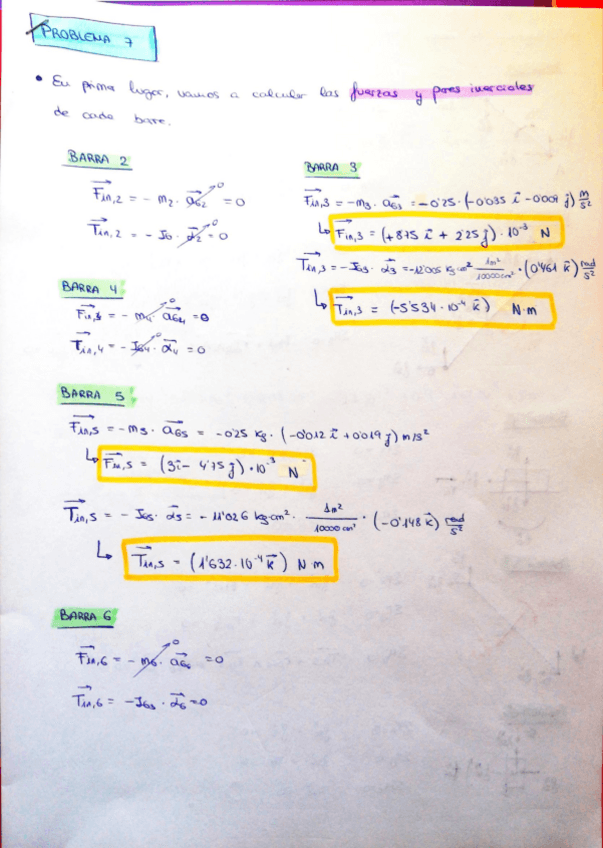 PROBLEMA 7
• En primer lugar, vamos a calcular las fuerzas y pares inerciales
de cada barra.
BARRA 2
F⃗in,2 = - m2 · a⃗G2 →0 = 0
T⃗in,2 = - JG · α⃗2 →0 = 0
BARRA 3
F⃗in,3 = - m3 · a⃗G3 = - 0'25 · (-0'035 i⃗ - 0'009 j⃗) m/s²
↳ F⃗in,3 = (+8'75 i⃗ + 2'25 j⃗) · 10⁻³ N
T⃗in,3 = - JG3 · α⃗3 = - 12'005 kg·cm² · 1m²/10000cm² · (0'461 k⃗) rad/s²
↳ T⃗in,3 = (-5'534 · 10⁻⁴ k⃗) N·m
BARRA 4
F⃗in,4 = - m4 · a⃗G4 →0 = 0
T⃗in,4 = - JG4 · α⃗4 = 0
BARRA 5
F⃗in,5 = - m5 · a⃗G5 = - 0'25 kg · (-0'012 i⃗ + 0'019 j⃗) m/s²
↳ F⃗in,5 = (3 i⃗ - 4'75 j⃗) · 10⁻³ N
T⃗in,5 = - JG5 · α⃗5 = - 11'026 kg·cm² · 1m²/10000cm² · (-0'148 k⃗) rad/s²
↳ T⃗in,5 = (1'632 · 10⁻⁴ k⃗) N·m
BARRA 6
F⃗in,6 = - m6 · a⃗G6 →0 = 0
T⃗in,6 = - JG3 · α⃗6 = 0